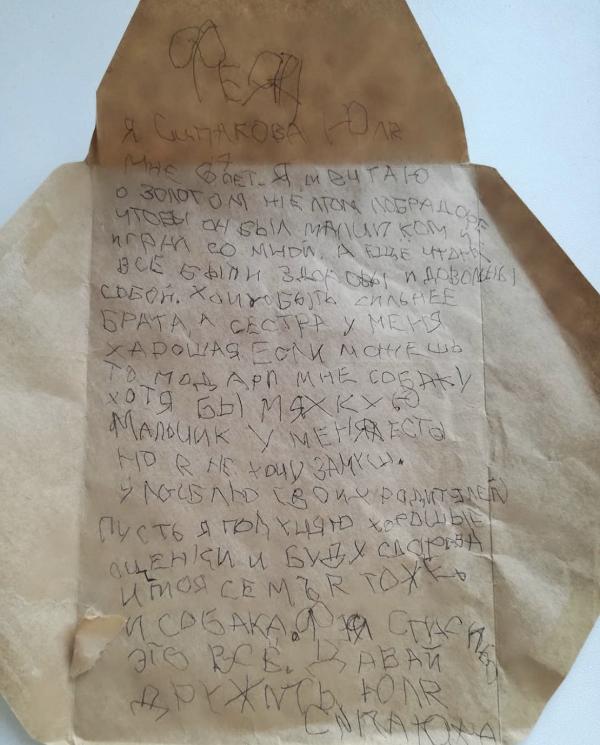 ФЕЯ
Я СИПАКОВА ЮЛЯ
МНЕ 6 ЛЕТ. Я МЕЧТАЮ
О ЗОЛОТОМ ЖЕЛТОМ ЛОБРАДОРЕ
ЧТОБЫ ОН БЫЛ МАЛЬЧИКОМ И
ИГРАЛ СО МНОЙ. А ЕЩЕ ЧТОБЫ
ВСЕ БЫЛИ ЗДОРОВЫ И ДОВОЛЬНЫ
СОБОЙ. ХОЧУ БЫТЬ СИЛЬНЕЕ
БРАТА А СЕСТРА У МЕНЯ
ХАРОШАЯ. ЕСЛИ МОЖЕШЬ
ТО ПОДАРИ МНЕ СОБАКУ
ХОТЯ БЫ МЯХКУЮ
МАЛЬЧИК У МЕНЯ ЕСТЬ
НО Я НЕ ХОЧУ ЗАМУШ.
Я ЛЮБЛЮ СВОИХ РОДИТЕЛЕЙ
ПУСТЬ Я ПОЛУЧАЮ ХОРОШЫЕ
ОЦЕНКИ И БУДУ СДОРОВА
И МОЯ СЕМЪЯ ТОЖЕ
И СОБАКА. СПАСИБО
ЭТО ВСЕ. ДАВАЙ
ДРУЖИТЬ ЮЛЯ